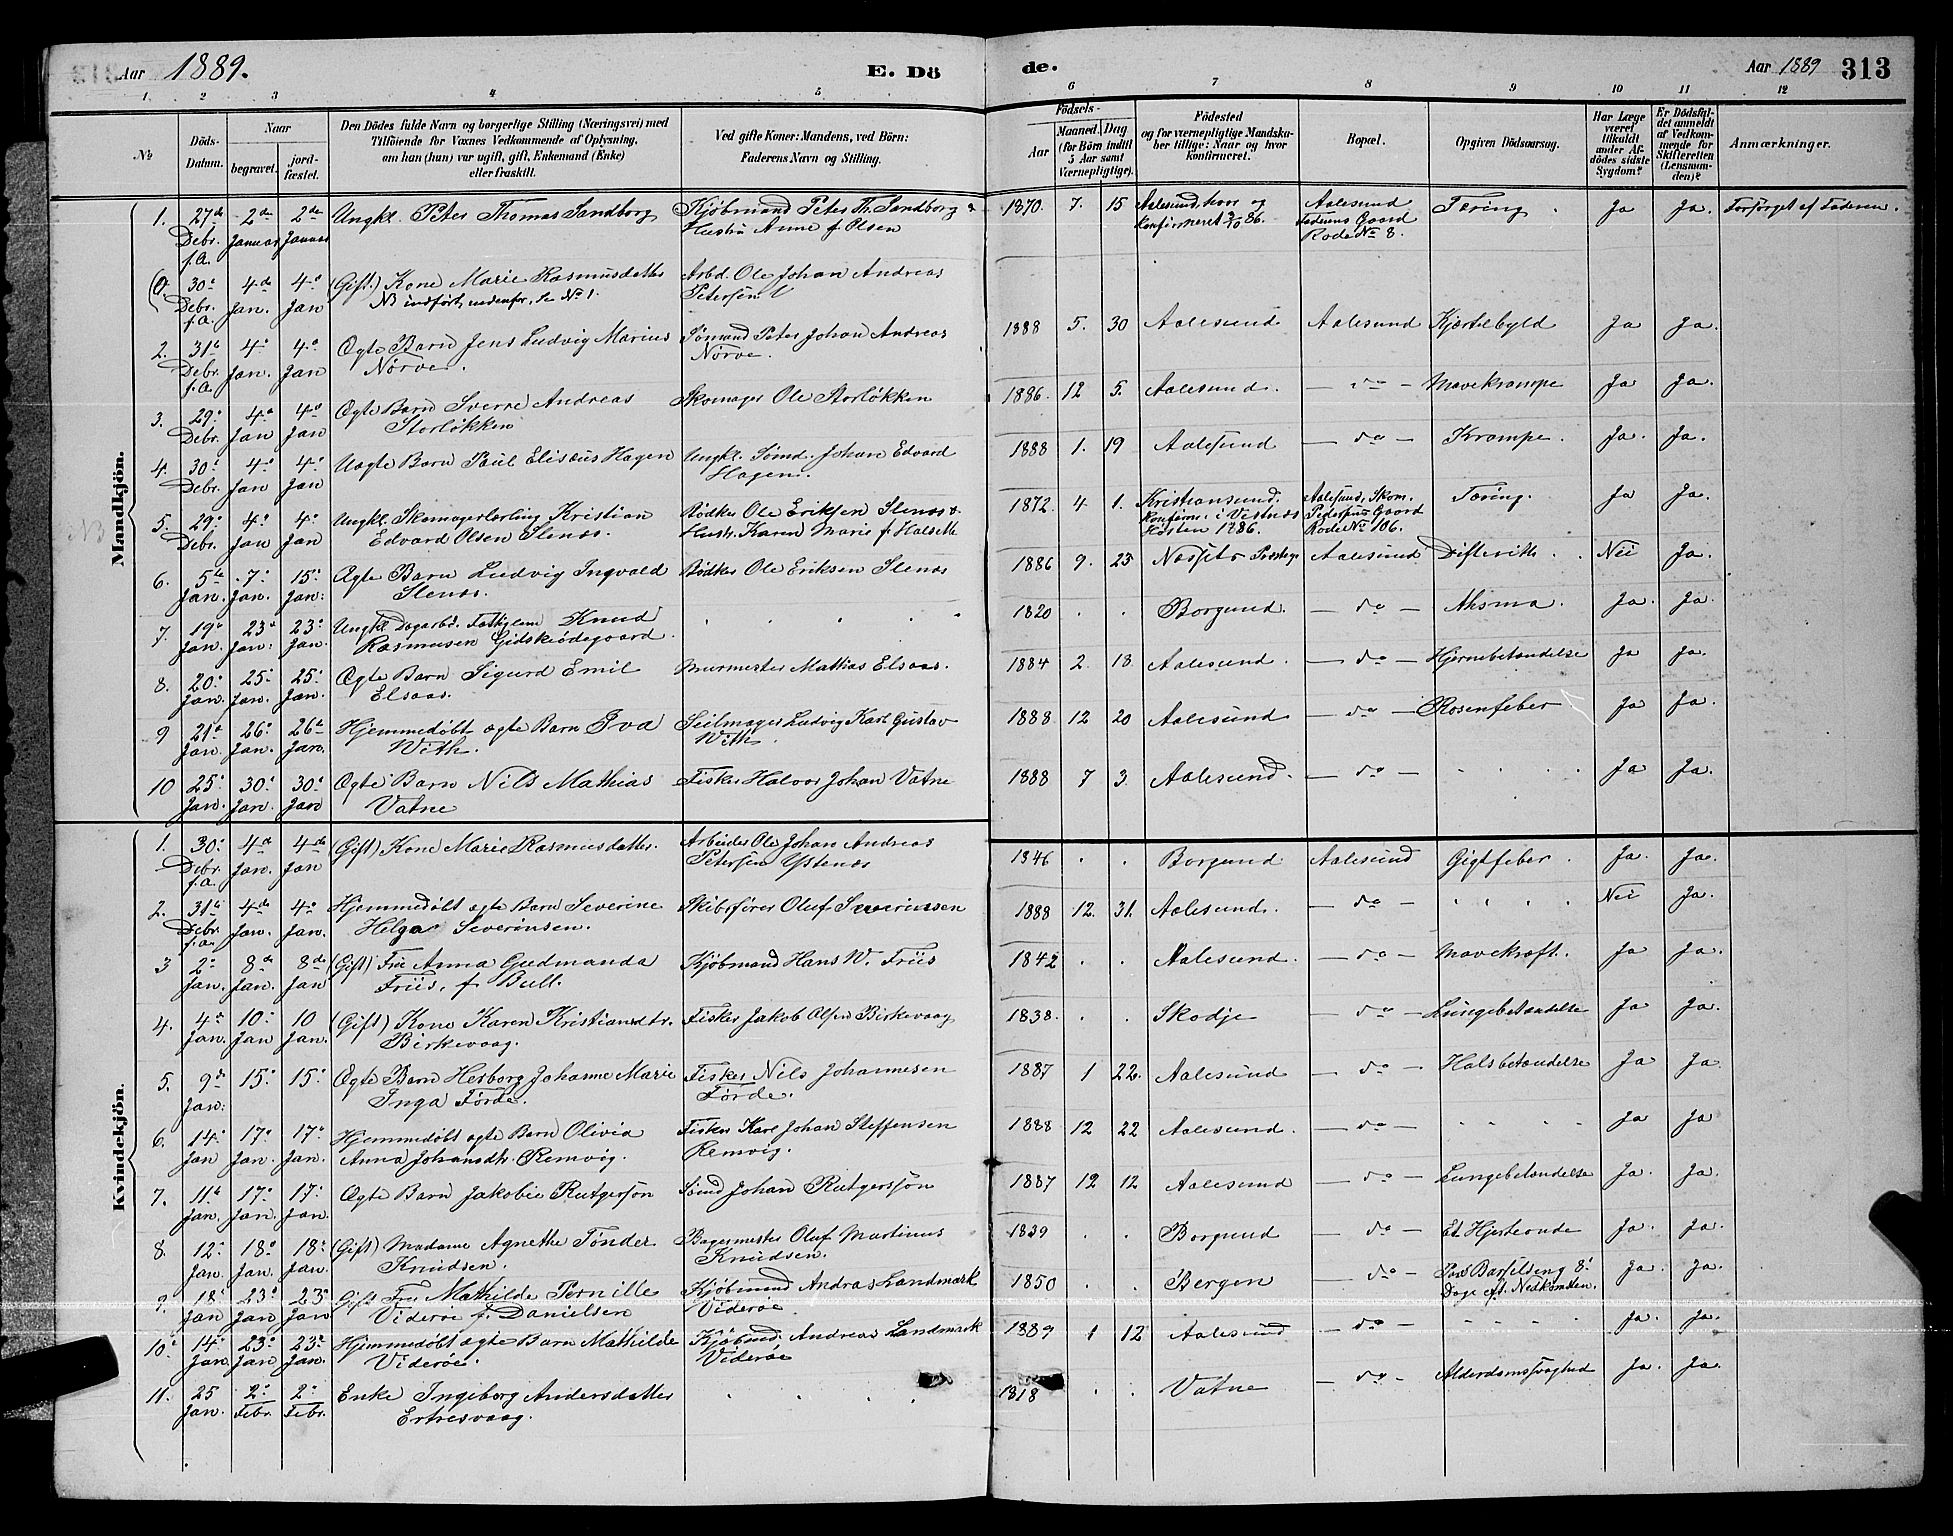 Aar 1889. E. Döde. Aar 1889 313
1. 2 3 4 5 6 7 8 9 10 11 12
№
Döds-Datum.
Naar
begravet.
jord-fæstet.
Den Dödes fulde Navn og borgerlige Stilling (Næringsvei) med
Tilföiende for Voxnes Vedkommende af Oplysning,
om han (hun) var ugift, gift, Enkemand (Enke)
eller fraskilt.
Ved gifte Koner: Mandens, ved Börn:
Faderens Navn og Stilling.
Födsels-
Aar
Maaned. Dag
(for Börn indtil
5 Aar samt
Værnepligtige).
Födested
og for værnepligtige Mandska-
ber tillige: Naar og hvor
konfirmeret.
Bopæl.
Opgiven Dödsaarsag.
Har Læge
været
tilkaldt
under Af-
dödes sidste
Sygdom?
Er Dödsfal-
det anmeldt
af Vedkom-
mende for
Skifteretten
(Lensman-
den)?
Anmærkninger.
Mandkjön.
1. 27de Debr. f.A. 2de Januar 2de Januar Ungkl. Peter Thomas Sandborg Kjöbmand Peter Th. Sandborg & Hustru Anne f. Olsen 1870. 7. 15 Aalesund, her og konfirmeret 3/10 86. Aalesund Faderens Gaard Rode № 8. Tæring. Ja Ja. Forsørget af Faderen.
30 Debr. f.a. 4de Jan. 4 Jan (Gift) Kone Marie Rasmusdatter NB indført nedenfor, se No 1. Arbd. Ole Johan Andreas Petersen
2. 31 Debr. f.a. 4 Jan. 4 Jan Ægte Barn Jens Ludvig Marius Nørve. Sömand Peter Johan Andreas Nörve. 1888 5. 30 Aalesund Aalesund Kjertelbyld Ja Ja.
3. 29 Debr. 4 Jan 4 Jan Ægte Barn Sverre Andreas Storløkken Skomager Ole Storløkken 1886. 12 5. Aalesund. — do — Mavekrampe Ja Ja.
4. 30 Debr. 4 Jan 4 Jan Uægte Barn Paul Elisæus Hagen Ungkl. Sømd. Johan Edvard Hagen. 1888 1. 19 Aalesund — do — Krampe. Ja. Ja.
5. 29 Debr. 4 Jan 4 Jan Ungkl. Skomagerlærling Kristian Edvard Olsen Stenæs. Bødker Ole Eriksen Stenæs & Hustr. Karen Marie f. Halseth 1872. 4 1. Kristiansund. Konfirm. i Vestnæs Høsten 1886. Aalesund, Skom. Pedersens Gaard Rode No 106. Tæring. Ja Ja.
6. 5te Jan. 7 Jan. 15 Jan. Ægte Barn Ludvig Ingvald Stenæs. Bødker Ole Eriksen Stenæs 1886 9. 23 Næsset Præstegj. Aalesund Difterith. Nei Ja.
7. 19 Jan. 23 Jan. 23 Jan. Ungkl Dagarbd. Fattiglem Knud Rasmusen Gidskeødegaard. 1820 Borgund. — do — Ahsma. Ja. Ja.
8. 20 Jan. 25 Jan. 25 Jan. Ægte Barn Sigurd Emil Elsaas. Murmester Mathias Elsaas. 1884 2. 18. Aalesund. — do — Hjernebetændelse Ja Ja.
9 21 Jan. 26 Jan. 26 Jan. Hjemmedøbt ægte Barn Iva With. Seilmager Ludvig Karl Gustav With. 1888 12 20 Aalesund — do — Rosenfeber Ja Ja.
10 25 Jan. 30 Jan. 30 Jan Ægte Barn Nils Mathias Vatne Fisker Halvor Johan Vatne 1888 7 3. Aalesund. — do — Ja Ja.
Kvindekjön.
1. 30 Debr. f.a. 4de Jan. 4de Jan (Gift) Kone Marie Rasmusdatter. Arbeider Ole Johan Andreas Petersen Ystenæs 1846 Borgund Aalesund Gigtfeber. Ja. Ja.
2. 31 Debr. f.a. 4de Jan. 4 Jan. Hjemmedøbt ægte Barn Severine Helga Severinsen. Skibsfører Oluf Severinsen 1888 12. 31. Aalesund. — do — Nei Ja.
3 2 Jan. 8de Jan. 8de Jan (Gift) Fru Anna Gudmanda Friis, f. Bull. Kjöbmand Hans W. Friis 1842 Aalesund. — do — Mavekræft. Ja Ja.
4. 4 Jan. 10 Jan 10 Jan. (Gift) Kone Karen Kristiansdtr. Birkevaag. Fisker Jakob Olsen Birkevaag 1838. Skodje — do — Lungebetændelse Ja Ja.
5. 9 Jan. 15 15 Ægte Barn Herborg Johanne Marie Inga Förde. Fisker Nils Johannesen Förde. 1887 1 22. Aalesund — do — Halsbetændelse Ja Ja.
6. 14 Jan 17 Jan. 17 Jan. Hjemmedøbt ægte Barn Olivia Anna Johansdtr. Remvig. Fisker Karl Johan Steffensen Remvig. 1888 12 22 Aalesund. — do — Ja Ja
7. 11 Jan. 17 Jan. 17 Jan. Ægte Barn Jakobie Rutgersön Sömd Johan Rutgersjön 1887 12 12 Aalesund — do — Lungebetændelse Ja. Ja.
8. 12 Jan. 18 Jan. 18 Jan. (Gift) Madame Agnethe Tønder Knudsen. Bagermester Oluf Martinus Knudsen. 1839 Borgund — do — Et Hjerteonde Ja. Ja.
9. 18 Jan 23 Jan 23 Jan Gift Fru Mathilde Pernille Viderøe f. Danielsen Kjöbmand Andras Landmark Viderøe 1850 Bergen — do — Paa Barselseng 8 Dage eft. Nedkomsten. Ja. Ja.
10. 14 Jan 23 Jan 23 Jan. Hjemmedøbt ægte Barn Mathilde Viderøe. Kjøbmd. Andreas Landmark Viderøe 1889 1 12 Aalesund — do — Ja. Ja.
11. 25 Jan. 2 Febr. 2 Febr. Enke Ingeborg Andersdatter Ertresvaag. 1818 Vatne — do — Alderdomssvaghed Ja. Ja.